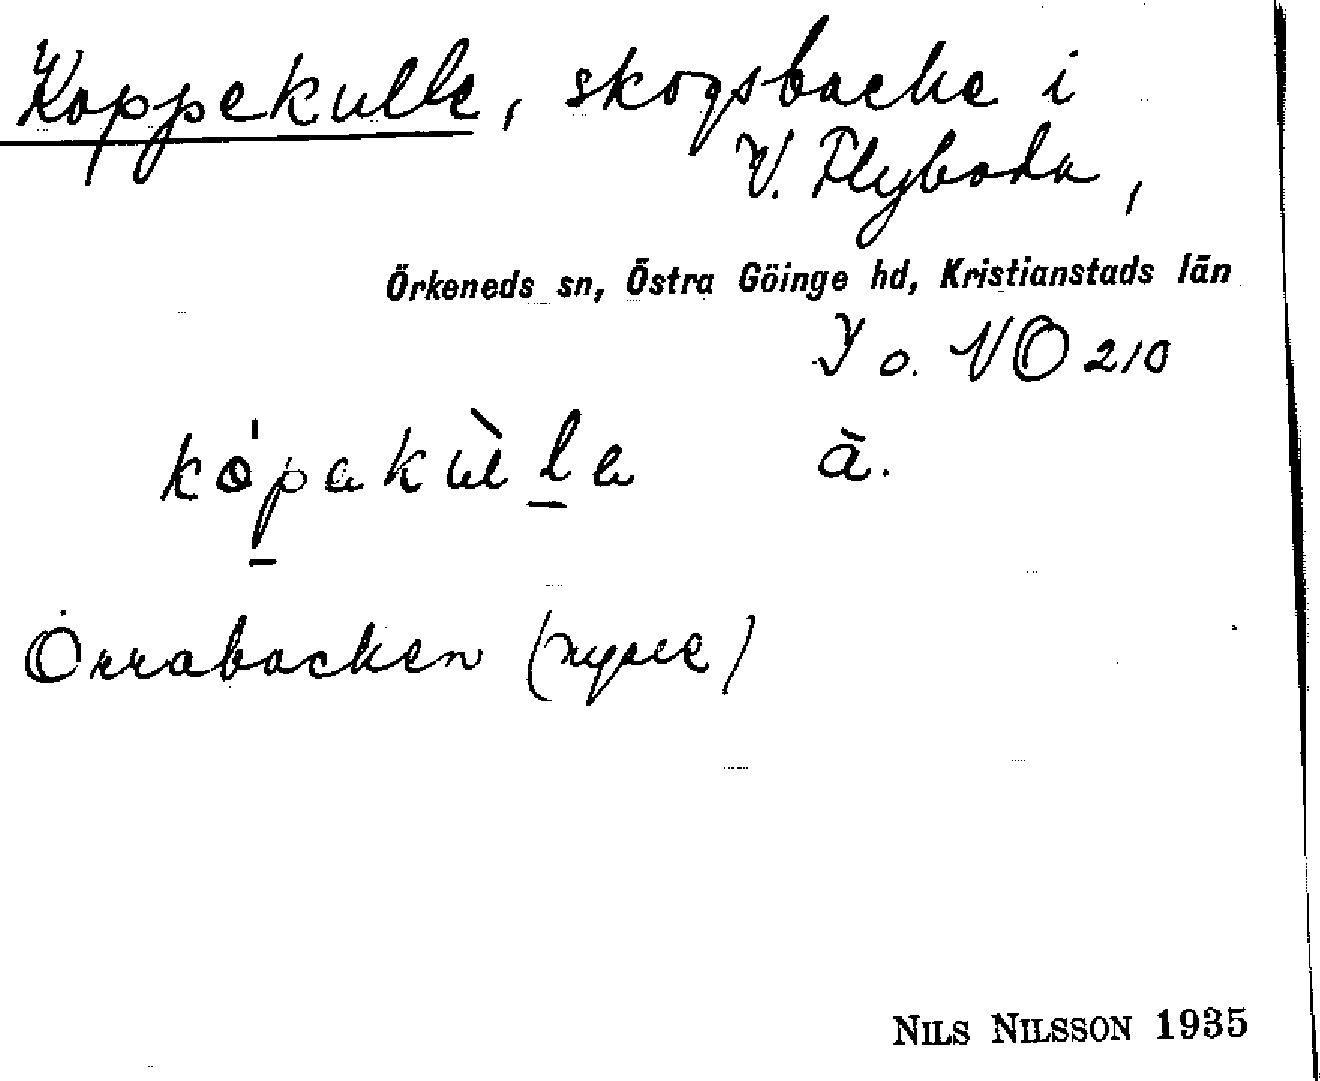 Koppekulle, skogsbacke i
V. Flyboda,
Örkeneds sn, Östra Göinge hd, Kristianstads län
Y o. NO 210
kópakùla ā.
Orrabacken (nyare)
NILS NILSSON 1935